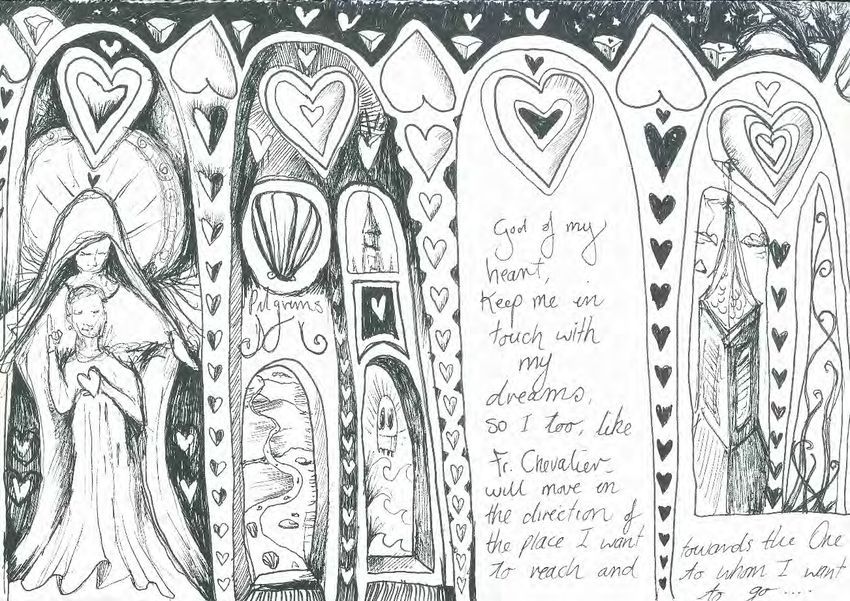 Pilgrims
God of my
heart,
Keep me in
touch with
my
dreams,
so I too, like
Fr. Chevalier
will move in
the direction of
the place I want
to reach and
towards the One
to whom I want
to go....